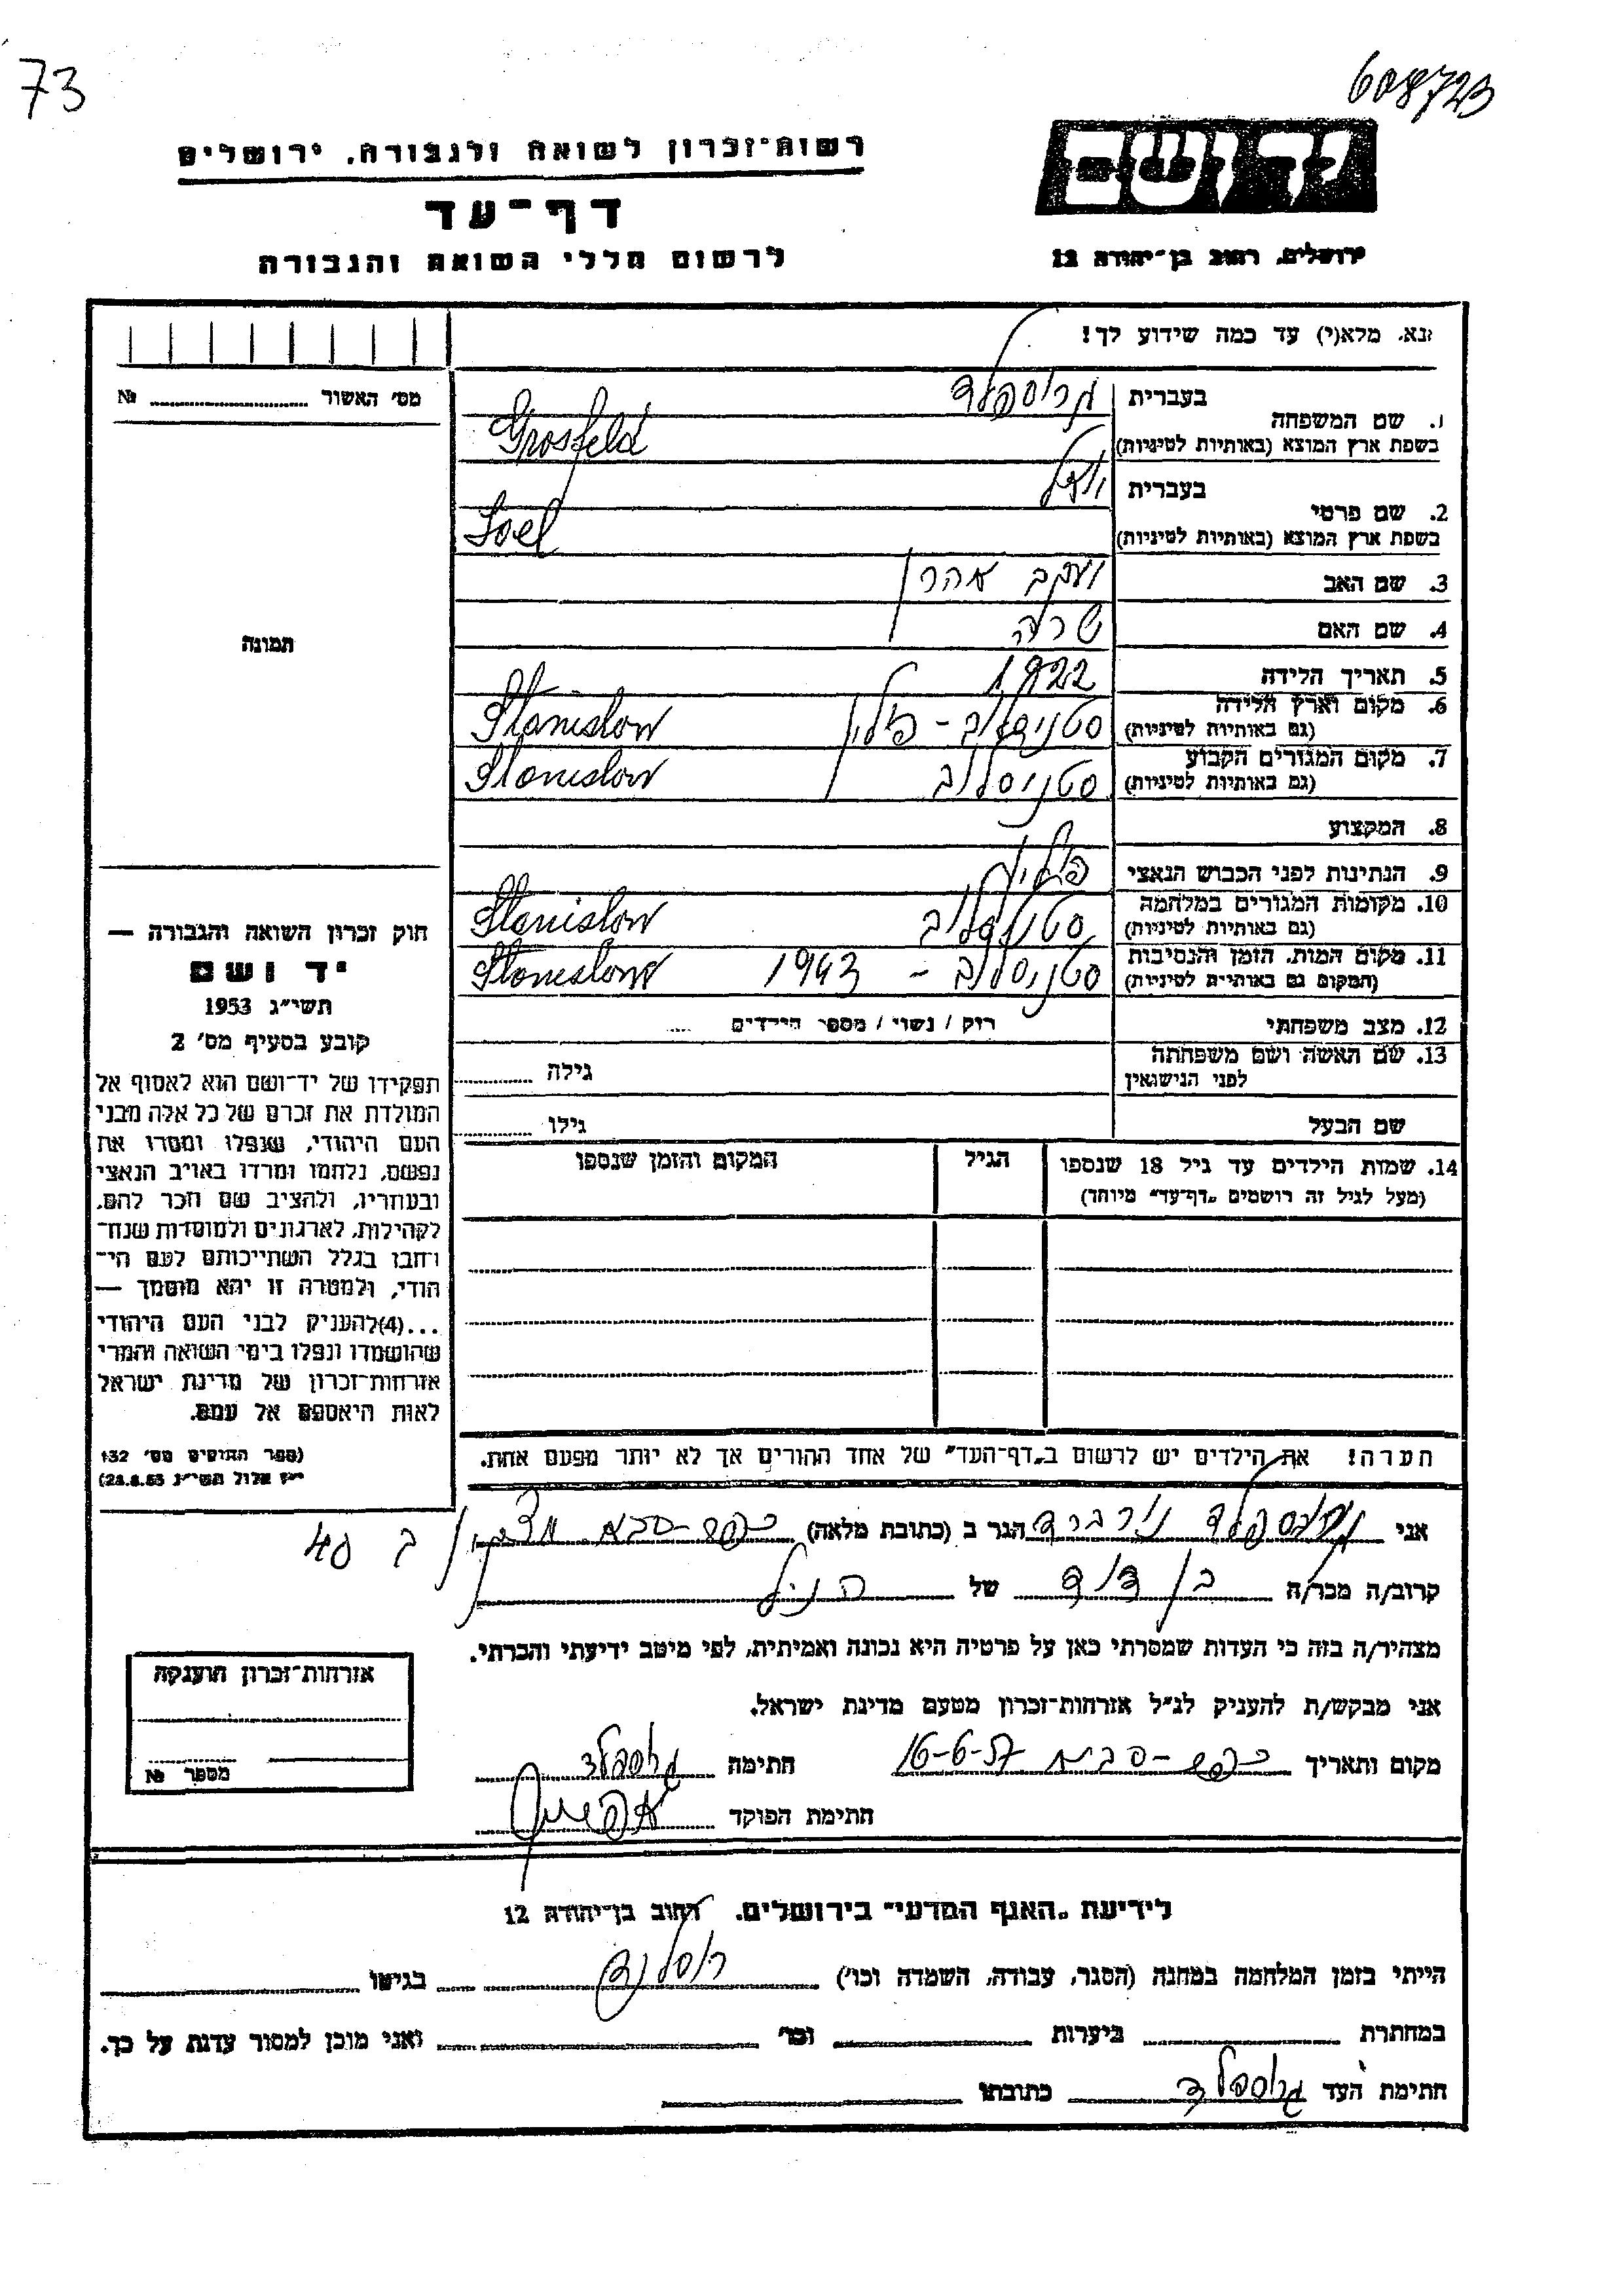 73
608723
יד ושם
רשות-זכרון לשואה ולגבורה, ירושלים
דף-עד
לרשום חללי השואה והגבורה
ירושלים, רחוב בן-יהודה 12
נא, מלא(י) עד כמה שידוע לך!
מס' האשור № 
1. שם המשפחה בעברית גרוספלד
בשפת ארץ המוצא (באותיות לטיניות) Grosfeld
2. שם פרטי בעברית יואל
בשפת ארץ המוצא (באותיות לטיניות) Joel
3. שם האב יעקב אהרן
4. שם האם שרה
5. תאריך הלידה 1922
6. מקום וארץ הלידה (גם באותיות לטיניות) סטניסלוב - פולין Stanislow
7. מקום המגורים הקבוע (גם באותיות לטיניות) סטניסלוב Stanislow
8. המקצוע
9. הנתינות לפני הכבוש הנאצי
10. מקומות המגורים במלחמה (גם באותיות לטיניות) סטניסלוב Stanislow
11. מקום המות, הזמן והנסיבות (המקום גם באותיות לטיניות) סטניסלוב - 1943 Stanislow
12. מצב משפחתי רוק / נשוי / מספר הילדים
13. שם האשה ושם משפחתה לפני הנישואין גילה
שם הבעל גילו
14. שמות הילדים עד גיל 18 שנספו הגיל המקום והזמן שנספו
(מעל לגיל זה רושמים "דף-עד" מיוחד)
הערה! את הילדים יש לרשום ב"דף-העד" של אחד ההורים אך לא יותר מפעם אחת.
תמונה
חוק זכרון השואה והגבורה —
יד ושם
תשי"ג 1953
קובע בסעיף מס' 2
תפקידו של יד-ושם הוא לאסוף אל
המולדת את זכרם של כל אלה מבני
העם היהודי, שנפלו ומסרו את
נפשם, נלחמו ומרדו באויב הנאצי
ובעוזריו, ולהציב שם וזכר להם,
לקהילות, לארגונים ולמוסדות שנח-
רבו בגלל השתייכותם לעם הי-
הודי, ולמטרה זו יהא מוסמך —
...(4) להעניק לבני העם היהודי
שהושמדו ונפלו בימי השואה והמרי
אזרחות-זכרון של מדינת ישראל
לאות היאספם אל עמם.
(ספר החוקים מס' 132
י"ז אלול תשי"ג 28.8.53)
אני גרוספלד הגר ב (כתובת מלאה) כפר-סבא 40
קרוב/ה מכר/ה בן דוד של הנ"ל
מצהיר/ה בזה כי העדות שמסרתי כאן על פרטיה היא נכונה ואמיתית, לפי מיטב ידיעתי והכרתי.
אני מבקש/ת להעניק לנ"ל אזרחות-זכרון מטעם מדינת ישראל.
מקום ותאריך כפר-סבא 16-6-57 חתימה גרוספלד
חתימת הפוקד
אזרחות-זכרון הוענקה
מספר №
לידיעת "האגף המדעי" בירושלים, רחוב בן-יהודה 12
הייתי בזמן המלחמה במחנה (הסגר, עבודה, השמדה וכו') בגיטו
במחתרת ביערות וכו' ואני מוכן למסור עדות על כך.
חתימת העד גרוספלד כתובתו